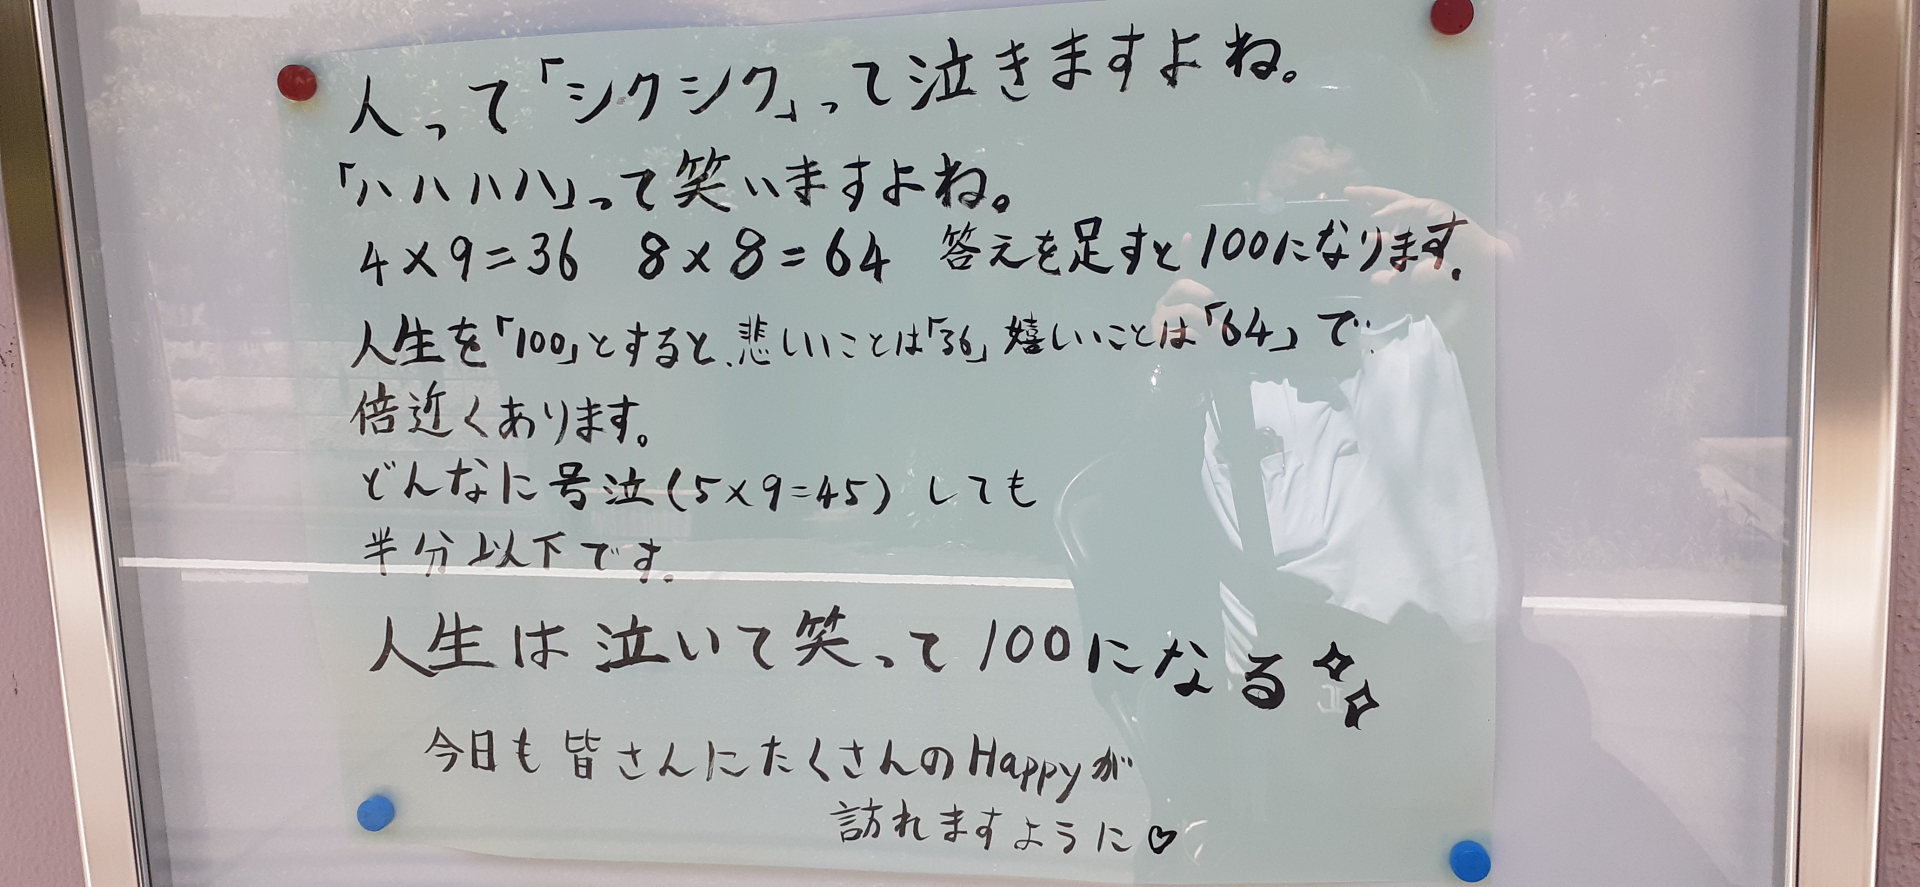 人って「シクシク」って泣きますよね。
「ハハハハ」って笑いますよね。
4×9=36 8×8=64 答えを足すと100になります。
人生を「100」とすると、悲しいことは「36」嬉しいことは「64」で
倍近くあります。
どんなに号泣(5×9=45)しても
半分以下です。
人生は泣いて笑って100になる
今日も皆さんにたくさんのHappyが
訪れますように♡